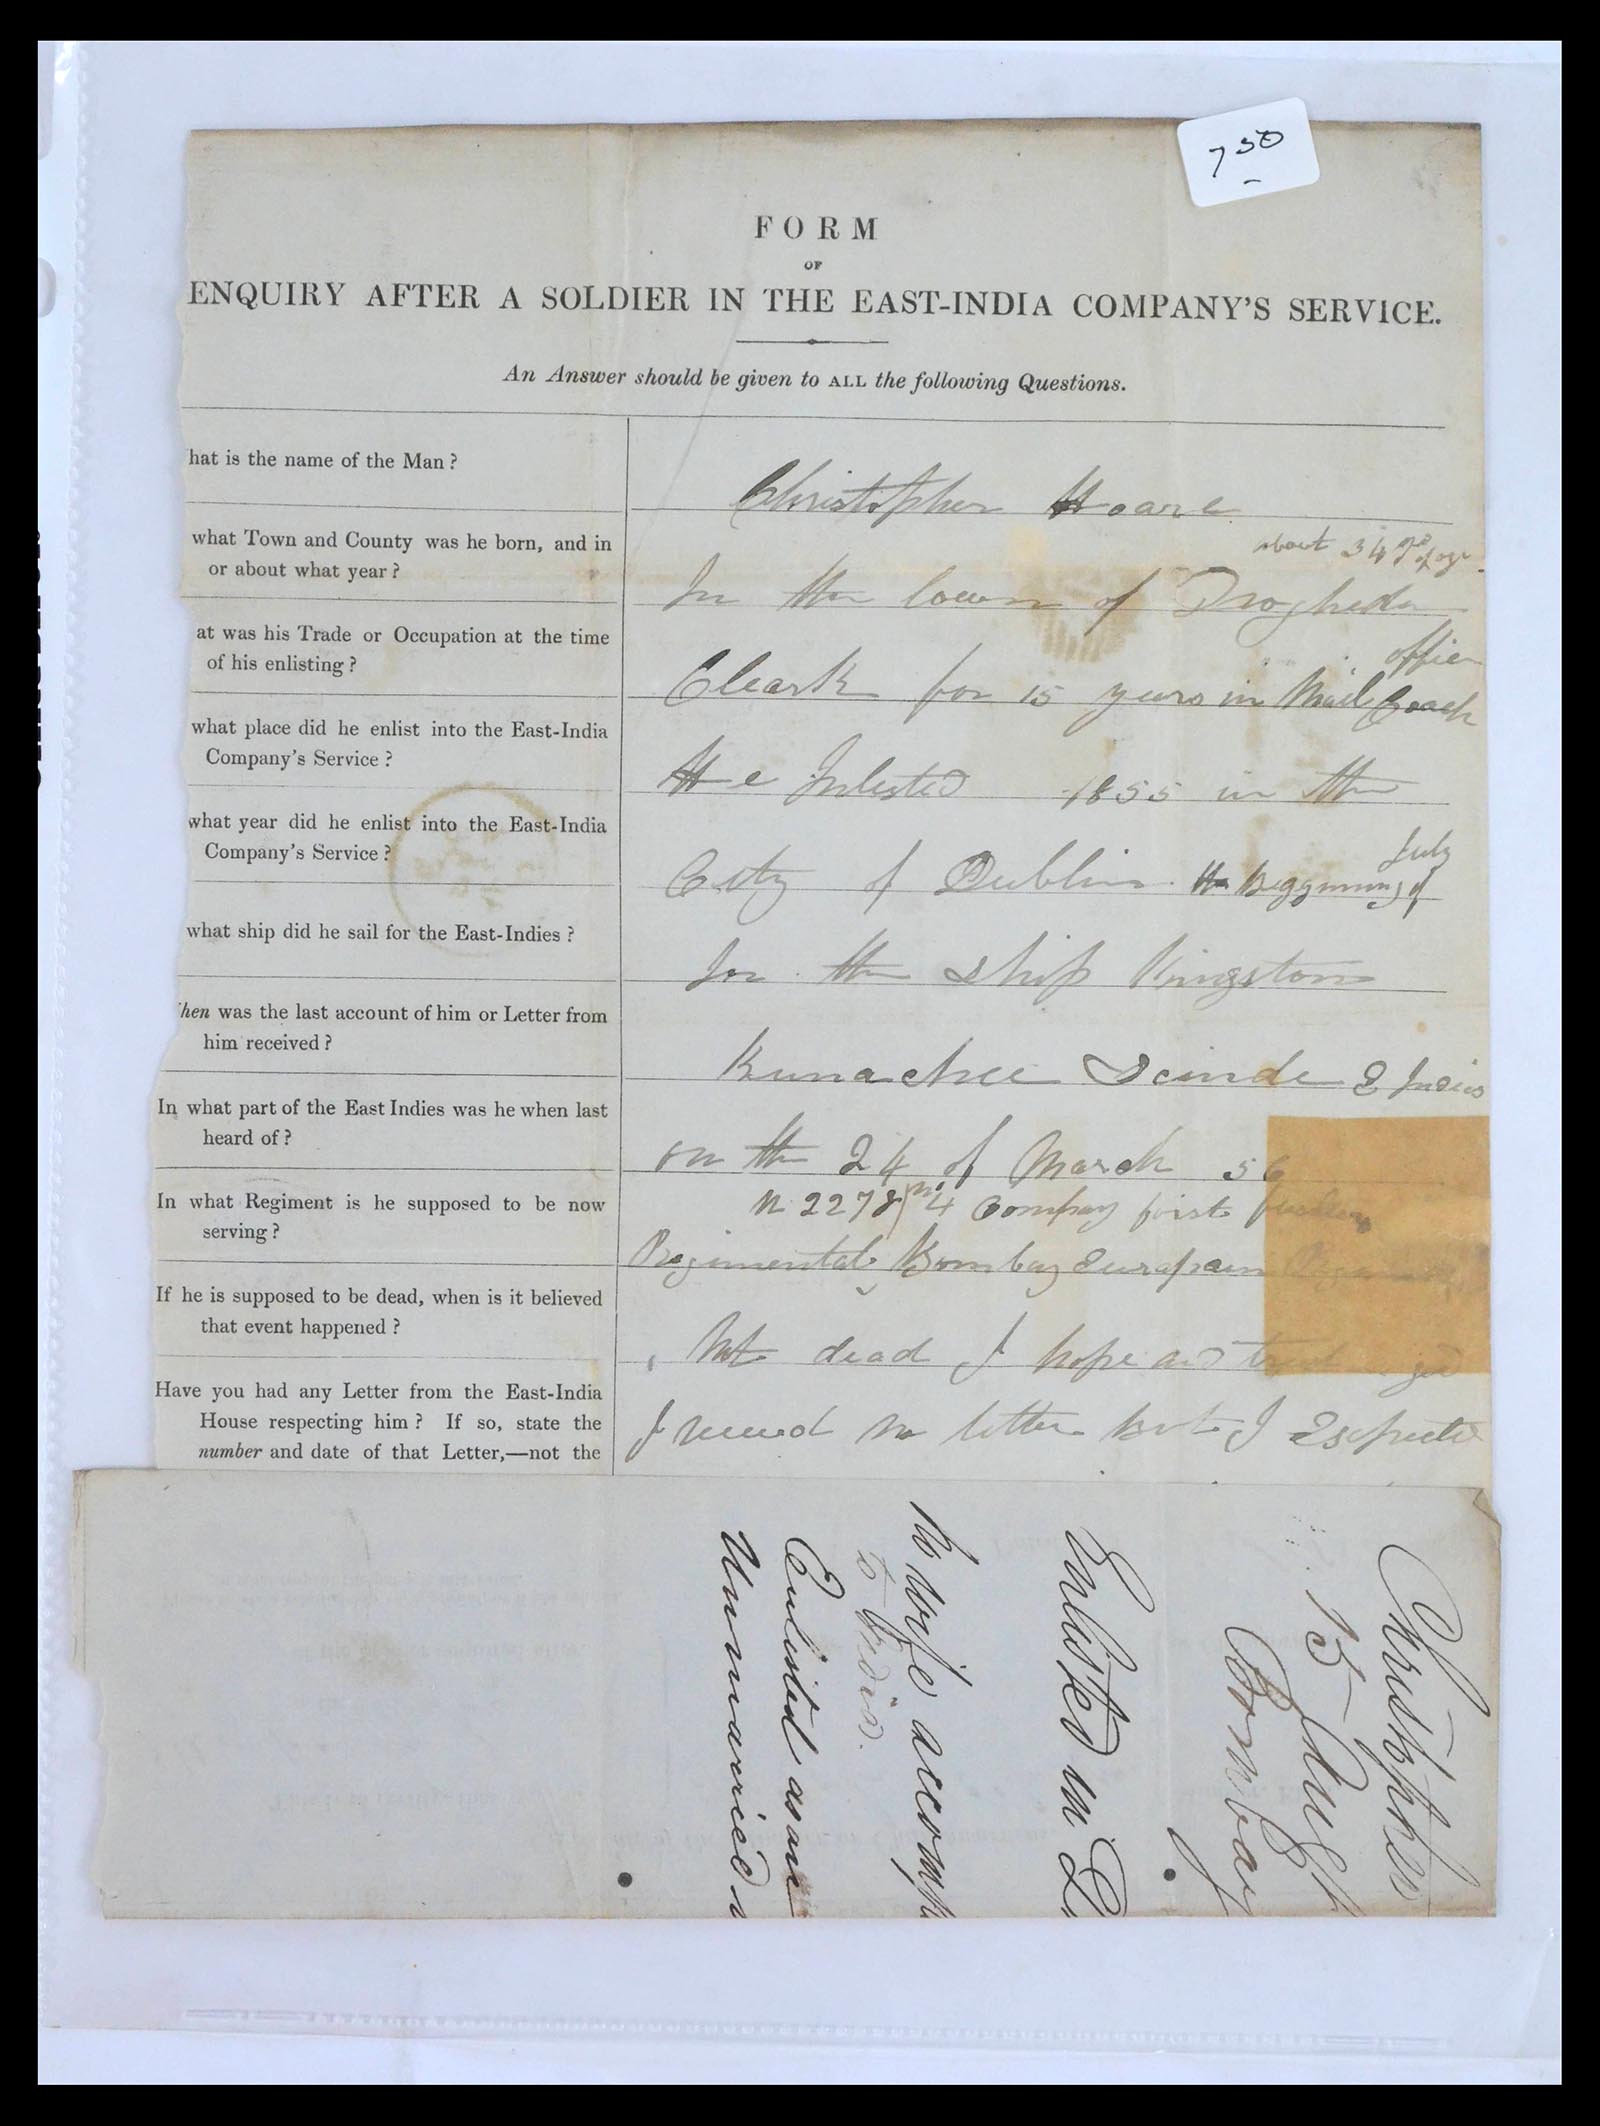 7 50
FORM
OF
ENQUIRY AFTER A SOLDIER IN THE EAST-INDIA COMPANY'S SERVICE.
An Answer should be given to ALL the following Questions.
hat is the name of the Man ?
Christopher Hoare
what Town and County was he born, and in
or about what year ?
about 34 yrs of age
In the town of Drogheda
at was his Trade or Occupation at the time
of his enlisting ?
office
Cleark for 15 years in Mail Coach
what place did he enlist into the East-India
Company's Service ?
He Inlisted 1855 in the
what year did he enlist into the East-India
Company's Service ?
July
City of Dublin Beggining of
what ship did he sail for the East-Indies ?
In the Ship Kingston
hen was the last account of him or Letter from
him received ?
Kurrachee Scinde E Indies
In what part of the East Indies was he when last
heard of ?
on the 24 of March 56
In what Regiment is he supposed to be now
serving ?
N 2278 4 Company first fusileers
Regimental Bombay European
If he is supposed to be dead, when is it believed
that event happened ?
Not dead I hope and trust
Have you had any Letter from the East-India
House respecting him ? If so, state the
number and date of that Letter,—not the
I receved no letter But I Expected
Christopher
15
Bombay
Enlisted in
No wife accomp
to India.
Enlisted as an
Unmarried